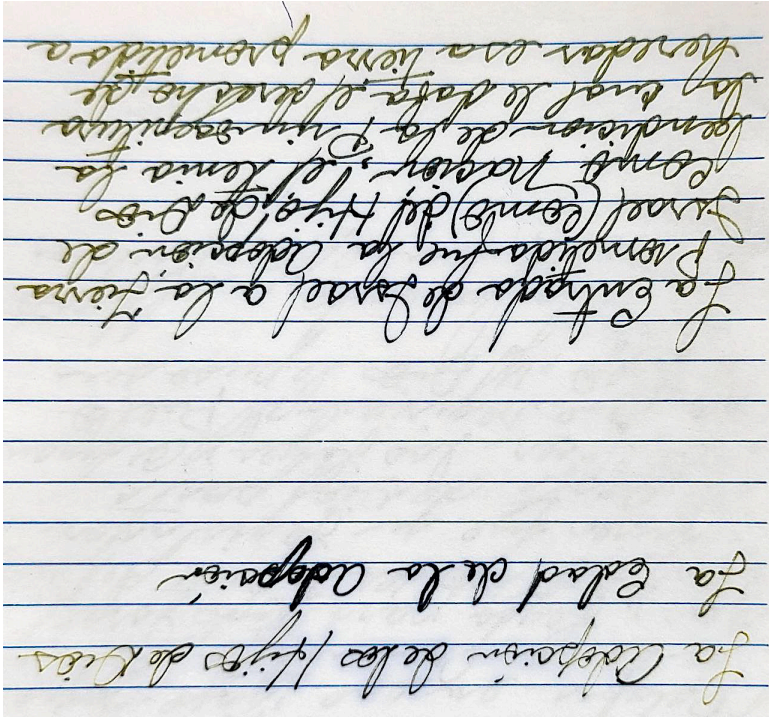 La Adopción de los Hijos de Dios
La Edad de la Adopción
La Entrada de Israel a la Tierra
Prometida fue la Adopcion de
Israel (como) del Hijo de Dios
como nación; el tenia la
bendicion de la Primogenitura
la cual le daba el derecho de
heredar esa tierra prometida a